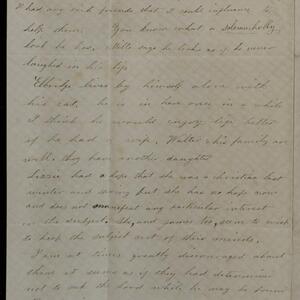 I had any such friends that I could influence to
help them. You know what a solemncholly
look he has. Mill says he looks as if he never
laughed in his life
Elbridge lives by himself alone with
his cat. he is in here once in a while
I think he would enjoy life better
if he had a wife. Walter & his family are
well. they have another daughter
Lizzie had a hope that she was a christian last
winter and spring but she has no hope now
and does not manifest any particular interest
in the subject. She, and James too, seem to wish
to keep the subject out of their minds.
I am at times greatly discouraged about
them it seems as if they had determined
not to seek the Lord while he may be found